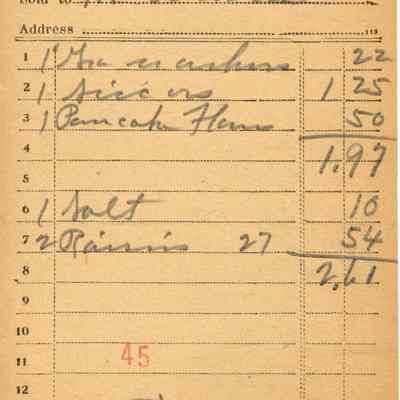 Sold to
Address 113
1 1 Gra crackers 22
2 1 1 25
3 1 Pancake Flour 50
4 1.97
5
6 1 Salt 10
7 2 Raisins 27 54
8 2.61
9
10
11 45
12